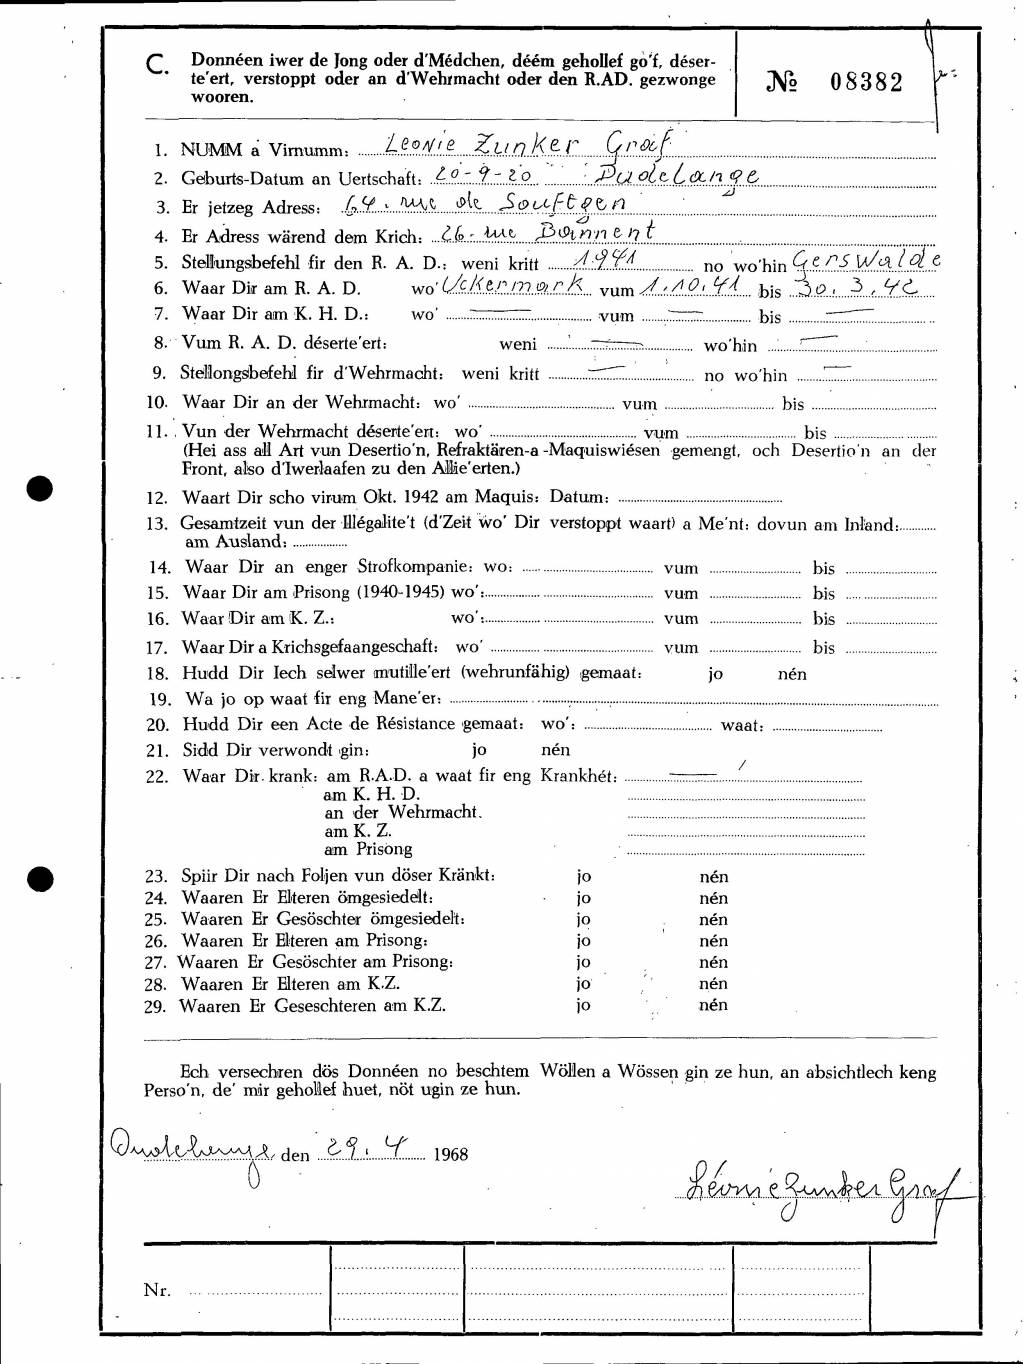 C. Donnéen iwer de Jong oder d'Médchen, déém gehollef go'f, déser-
te'ert, verstoppt oder an d'Wehrmacht oder den R.AD. gezwonge
wooren.
№ 08382
1. NUMM a Virnumm: Leonie Zunker Graf
2. Geburts-Datum an Uertschaft: 20-9-20 Dudelange
3. Er jetzeg Adress: 64. rue de Souftgen
4. Er Adress wärend dem Krich: 26. rue Boinnent
5. Stellungsbefehl fir den R. A. D.: weni kritt 1941 no wo'hin Gerswalde
6. Waar Dir am R. A. D. wo' Uckermark vum 1.10.41 bis 30.3.42
7. Waar Dir am K. H. D.: wo' — vum — bis —
8. Vum R. A. D. déserte'ert: weni — wo'hin —
9. Stellongsbefehl fir d'Wehrmacht: weni kritt — no wo'hin —
10. Waar Dir an der Wehrmacht: wo' vum bis
11. Vun der Wehrmacht déserte'ert: wo' vum bis
(Hei ass all Art vun Desertio'n, Refraktären-a-Maquiswiésen gemengt, och Desertio'n an der
Front, also d'Iwerlaafen zu den Allie'erten.)
12. Waart Dir scho virum Okt. 1942 am Maquis: Datum:
13. Gesamtzeit vun der Illégalite't (d'Zeit wo' Dir verstoppt waart) a Me'nt: dovun am Inland:
am Ausland:
14. Waar Dir an enger Strofkompanie: wo: vum bis
15. Waar Dir am Prisong (1940-1945) wo': vum bis
16. Waar Dir am K. Z.: wo': vum bis
17. Waar Dir a Krichsgefaangeschaft: wo' vum bis
18. Hudd Dir Iech selwer mutille'ert (wehrunfähig) gemaat: jo nén
19. Wa jo op waat fir eng Mane'er:
20. Hudd Dir een Acte de Résistance gemaat: wo': waat:
21. Sidd Dir verwondt gin: jo nén
22. Waar Dir krank: am R.A.D. a waat fir eng Krankhét: —
am K. H. D.
an der Wehrmacht.
am K. Z.
am Prisong
23. Spiir Dir nach Foljen vun döser Kränkt: jo nén
24. Waaren Er Elteren ömgesiedelt: jo nén
25. Waaren Er Gesöschter ömgesiedelt: jo nén
26. Waaren Er Elteren am Prisong: jo nén
27. Waaren Er Gesöschter am Prisong: jo nén
28. Waaren Er Elteren am K.Z. jo nén
29. Waaren Er Geseschteren am K.Z. jo nén
Ech versechren dös Donnéen no beschtem Wöllen a Wössen gin ze hun, an absichtlech keng
Perso'n, de' mir gehollef huet, nöt ugin ze hun.
Dudelange, den 29. 4 1968
Léonie Zunker Graf
Nr.